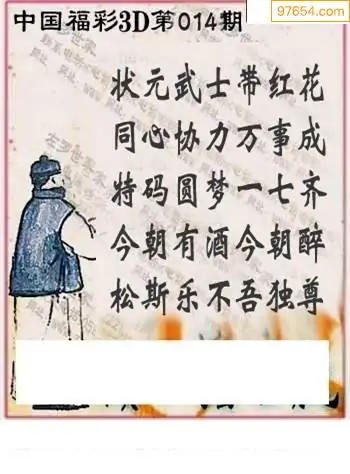 中国福彩3D第014期
97654.com
状元武士带红花
同心协力万事成
特码圆梦一七齐
今朝有酒今朝醉
松斯乐不吾独尊